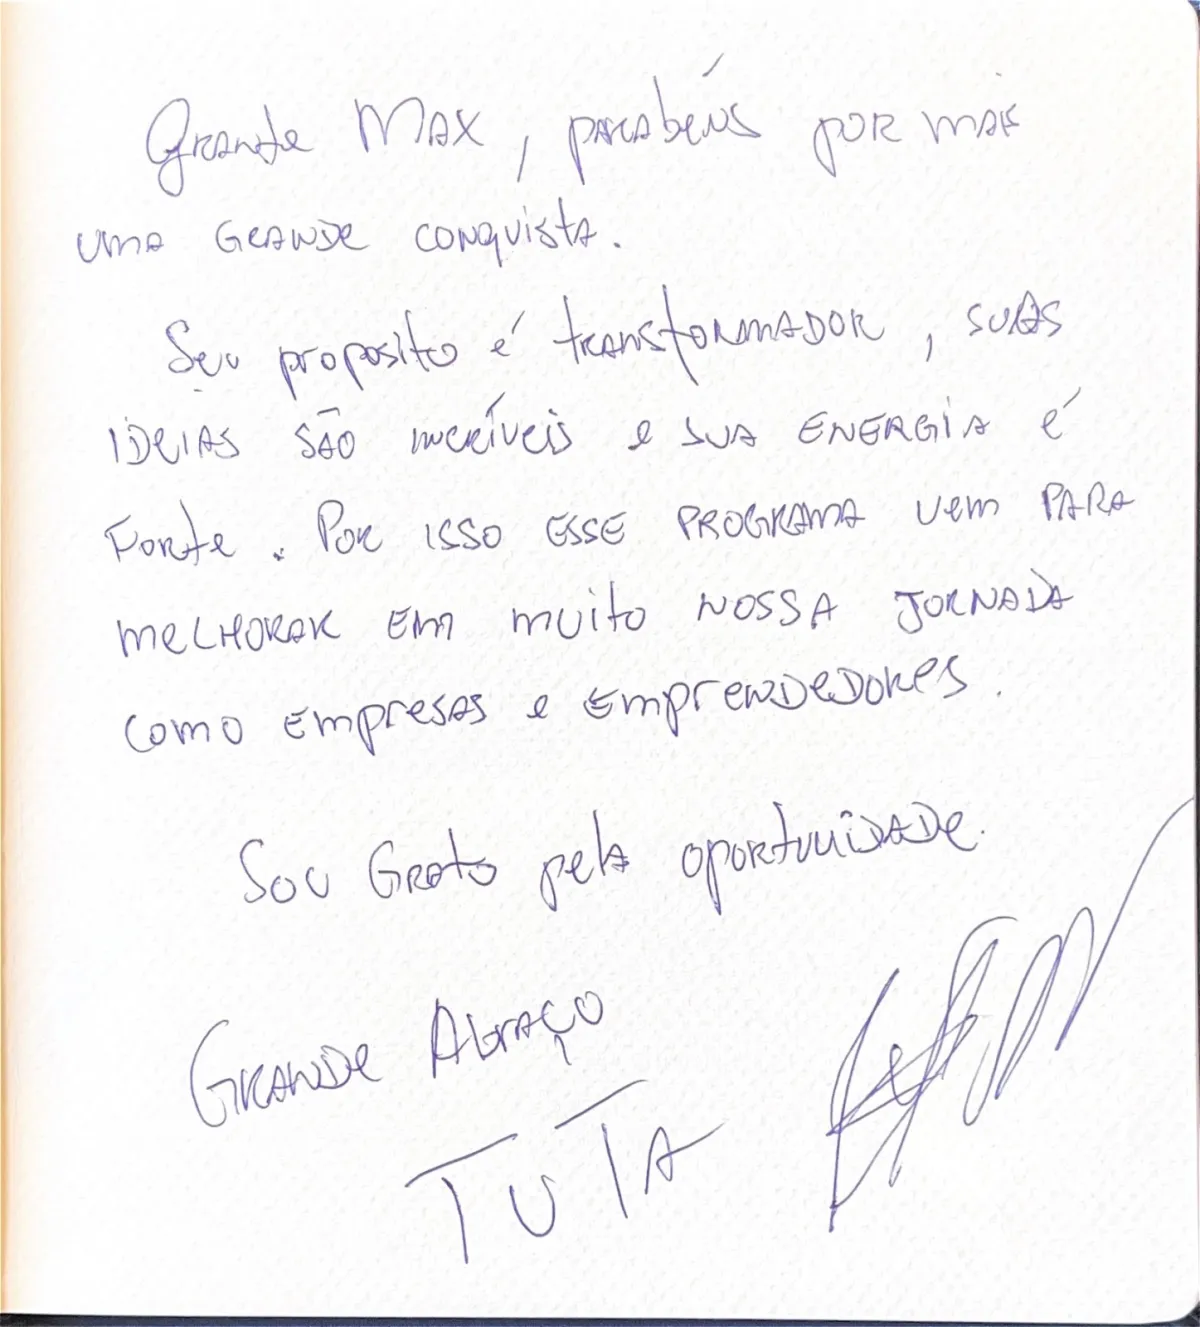 Grande Max, parabéns por mais
uma Grande conquista.
Seu proposito é transformador, suas
ideias são incríveis e sua energia é
Forte. Por isso esse programa vem para
melhorar em muito nossa jornada
como empresas e emprendedores.
Sou Grato pela oportunidade.
Grande Abraço
TUTA